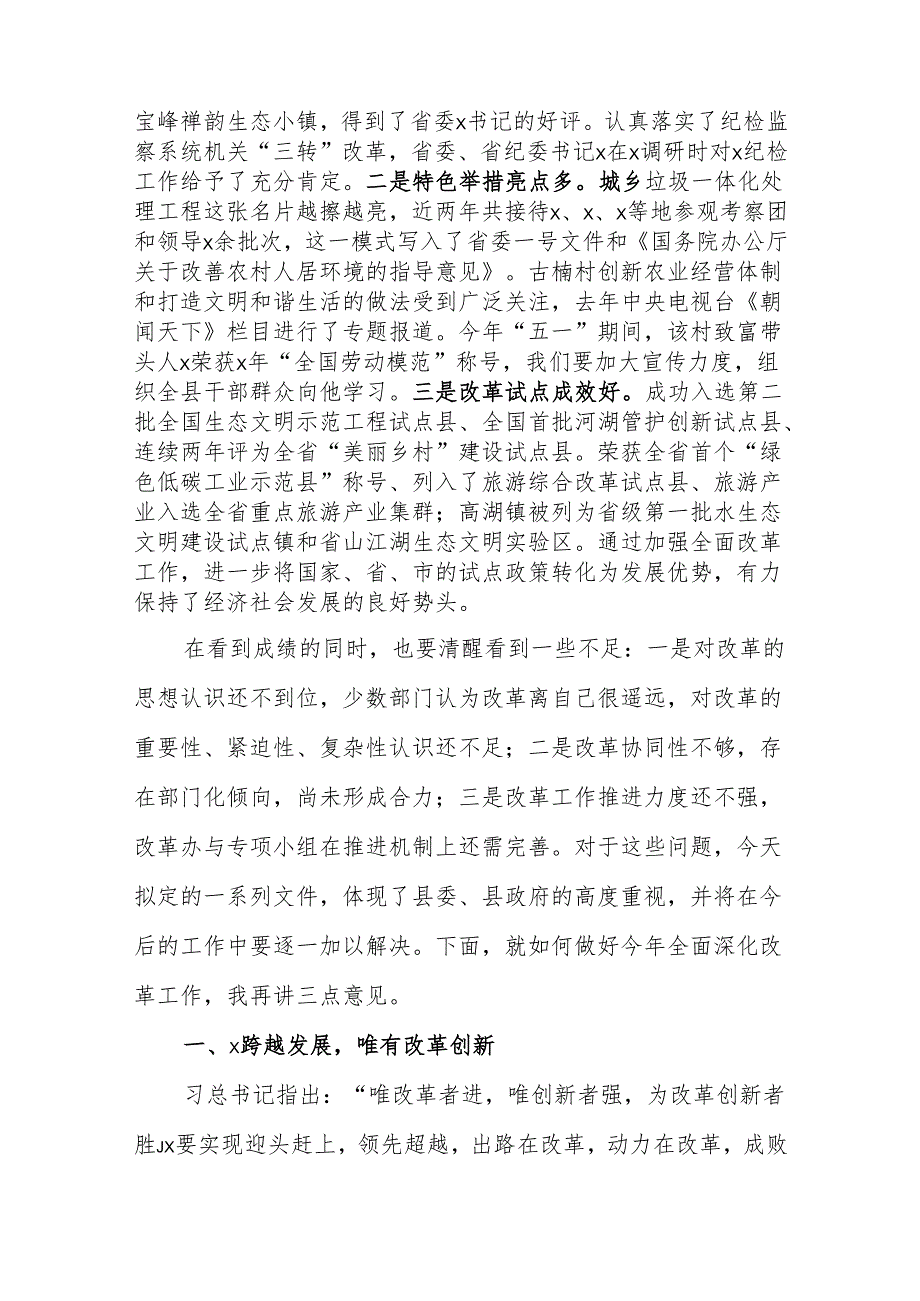 宝峰禅韵生态小镇，得到了省委x书记的好评。认真落实了纪检监
察系统机关“三转”改革，省委、省纪委书记x在x调研时对x纪检
工作给予了充分肯定。二是特色举措亮点多。城乡垃圾一体化处
理工程这张名片越擦越亮，近两年共接待x、x、x等地参观考察团
和领导x余批次，这一模式写入了省委一号文件和《国务院办公厅
关于改善农村人居环境的指导意见》。古楠村创新农业经营体制
和打造文明和谐生活的做法受到广泛关注，去年中央电视台《朝
闻天下》栏目进行了专题报道。今年“五一”期间，该村致富带
头人x荣获x年“全国劳动模范”称号，我们要加大宣传力度，组
织全县干部群众向他学习。三是改革试点成效好。成功入选第二
批全国生态文明示范工程试点县、全国首批河湖管护创新试点县、
连续两年评为全省“美丽乡村”建设试点县。荣获全省首个“绿
色低碳工业示范县”称号、列入了旅游综合改革试点县、旅游产
业入选全省重点旅游产业集群；高湖镇被列为省级第一批水生态
文明建设试点镇和省山江湖生态文明实验区。通过加强全面改革
工作，进一步将国家、省、市的试点政策转化为发展优势，有力
保持了经济社会发展的良好势头。
在看到成绩的同时，也要清醒看到一些不足：一是对改革的
思想认识还不到位，少数部门认为改革离自己很遥远，对改革的
重要性、紧迫性、复杂性认识还不足；二是改革协同性不够，存
在部门化倾向，尚未形成合力；三是改革工作推进力度还不强，
改革办与专项小组在推进机制上还需完善。对于这些问题，今天
拟定的一系列文件，体现了县委、县政府的高度重视，并将在今
后的工作中要逐一加以解决。下面，就如何做好今年全面深化改
革工作，我再讲三点意见。
一、x跨越发展，唯有改革创新
习总书记指出：“唯改革者进，唯创新者强，为改革创新者
胜JX要实现迎头赶上，领先超越，出路在改革，动力在改革，成败